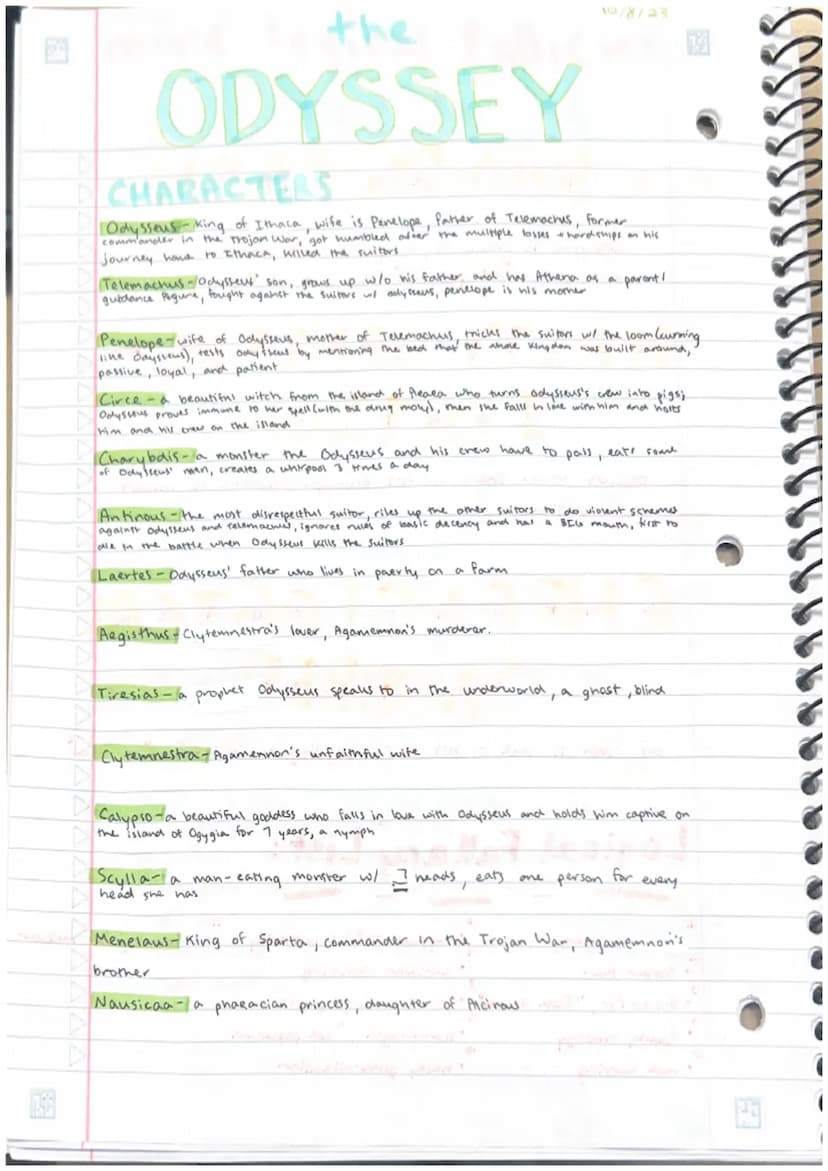 10/8/23
the
ODYSSEY
CHARACTERS
Odysseus- King of Ithaca, wife is Penelope, father of Telemachus, former
commander in the Trojan War, got humbled after the multiple losses + hardships on his
journey home to Ithaca, killed the suitors
Telemachus- Odysseus' son, grows up w/o his father and has Athena as a parent/
guidance figure, fought against the suitors w/ odysseus, penelope is his mother
Penelope- wife of Odysseus, mother of Telemachus, tricks the suitors w/ the loom (cunning
like Odysseus), tests Odysseus by mentioning the bed that the whole kingdom was built around,
passive, loyal, and patient
Circe- a beautiful witch from the island of Aeaea who turns odysseus's crew into pigs;
Odysseus proves immune to her spell (with the drug moly), then she falls in love with him and holds
him and his crew on the island
Charybdis- a monster the Odysseus and his crew have to pass, eats some
of Odysseus' men, creates a whirpool 3 times a day
Antinous- the most disrespectful suitor, riles up the other suitors to do violent schemes
against odysseus and telemachus, ignores rules of basic decency and has a BIG mouth, first to
die in the battle when Odysseus kills the suitors
Laertes- Odysseus' father who lives in poerty on a farm
Aegisthus- Clytemnestra's lover, Agamemnon's murderer.
Tiresias- a prophet Odysseus speaks to in the underworld, a ghost, blind
Clytemnestra- Agamemnon's unfaithful wife
Calypso- a beautiful goddess who falls in love with Odysseus and holds him captive on
the island of Ogygia for 7 years, a nymph
Scylla- a man-eating monster w/ 7 heads, eats one person for every
head she has
Menelaus- King of Sparta, commander in the Trojan War, Agamemnon's
brother
Nausicaa- a phaeacian princess, daughter of Alcinous